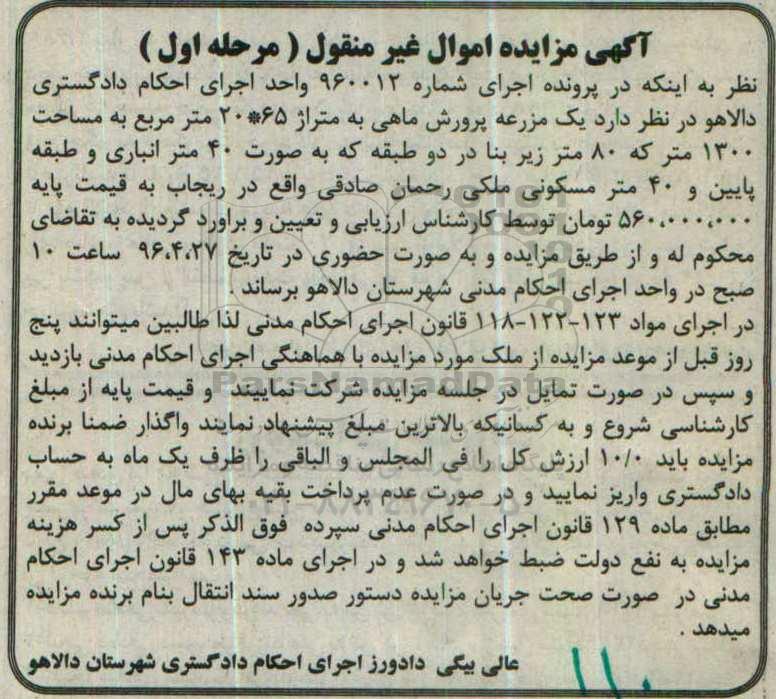 آگهی مزایده اموال غیر منقول ( مرحله اول )
نظر به اینکه در پرونده اجرای شماره ۹۶۰۰۱۲ واحد اجرای احکام دادگستری
دالاهو در نظر دارد یک مزرعه پرورش ماهی به متراژ ۶۵*۲۰ متر مربع به مساحت
۱۳۰۰ متر که ۸۰ متر زیر بنا در دو طبقه که به صورت ۴۰ متر انباری و طبقه
پایین و ۴۰ متر مسکونی ملکی رحمان صادقی واقع در ریجاب به قیمت پایه
۵۶۰،۰۰۰،۰۰۰ تومان توسط کارشناس ارزیابی و تعیین و براورد گردیده به تقاضای
محکوم له و از طریق مزایده و به صورت حضوری در تاریخ ۹۶،۴،۲۷ ساعت ۱۰
صبح در واحد اجرای احکام مدنی شهرستان دالاهو برساند .
در اجرای مواد ۱۲۳-۱۲۲-۱۱۸ قانون اجرای احکام مدنی لذا طالبین میتوانند پنج
روز قبل از موعد مزایده از ملک مورد مزایده با هماهنگی اجرای احکام مدنی بازدید
و سپس در صورت تمایل در جلسه مزایده شرکت نماییند و قیمت پایه از مبلغ
کارشناسی شروع و به کسانیکه بالاترین مبلغ پیشنهاد نمایند واگذار ضمنا برنده
مزایده باید ۱۰/۰ ارزش کل را فی المجلس و الباقی را ظرف یک ماه به حساب
دادگستری واریز نمایید و در صورت عدم پرداخت بقیه بهای مال در موعد مقرر
مطابق ماده ۱۲۹ قانون اجرای احکام مدنی سپرده فوق الذکر پس از کسر هزینه
مزایده به نفع دولت ضبط خواهد شد و در اجرای ماده ۱۴۳ قانون اجرای احکام
مدنی در صورت صحت جریان مزایده دستور صدور سند انتقال بنام برنده مزایده
میدهد .
عالی بیگی دادورز اجرای احکام دادگستری شهرستان دالاهو
ParsNamadData